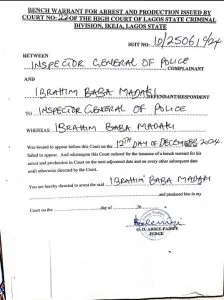 BENCH WARRANT FOR ARREST AND PRODUCTION ISSUED BY
COURT NO: 22 OF THE HIGH COURT OF LAGOS STATE CRIMINAL
DIVISION, IKEJA, LAGOS STATE
SUIT NO: 10/25061/24
BETWEEN
INSPECTOR GENERAL OF POLICE
COMPLAINANT
AND
IBRAHIM BABA MADAKI
DEFENDANT/RESPONDENT
TO INSPECTOR GENERAL OF POLICE
WHEREAS: IBRAHIM BABA MADAKI
Was bound to appear before this Court on the 12TH DAY OF DECEMBER 2024
failed to appear. And whereupon this Court ordered for the issuance of a bench warrant for his
arrest and production in Court on the next adjourned date and on every other subsequent date
until otherwise directed by the Court.
You are hereby directed to arrest the said IBRAHIM BABA MADAKI
and produced him in my
Court on the day of 20
JUDGE